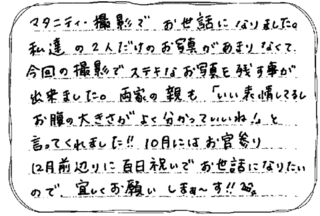 マタニティ・撮影で お世話になりました。
私達の2人だけのお写真があまりなくて
今回の撮影でステキなお写真を残す事が
出来ました。両家の親も「いい表情してるし
お腹の大きさがよく分かっていいね!」と
言ってくれました!! 10月にはお宮参り
12月前辺りに百日祝いでお世話になりたい
ので、宜しくお願い しまぁーす!!